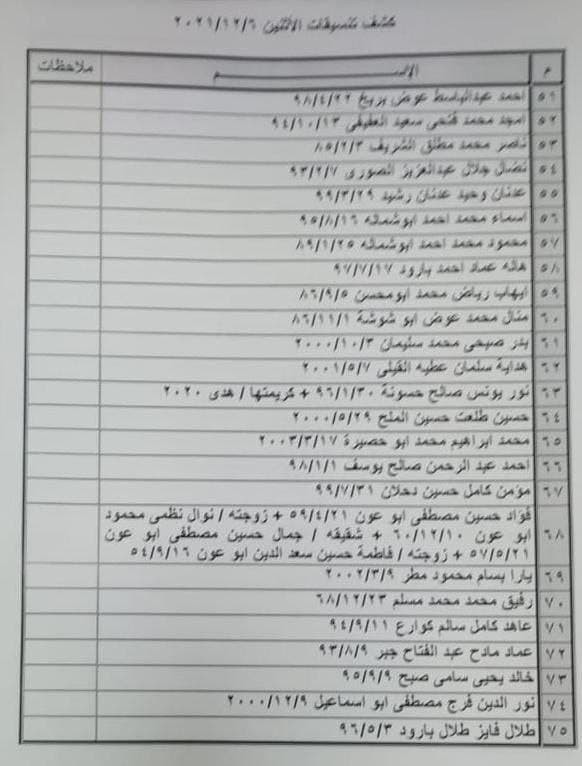 كشف تنسيقات الاثنين ٢٠٢١/١٢/٦
م الإســـم ملاحظات
٥١ احمد عبدالباسط عوض بريخ ٩٨/٤/٢٢
٥٢ امجد محمد فتحى سعيد العفيفى ٩٤/١٠/١٣
٥٣ ناصر محمد مطلق الشريف ٨٥/٢/٣
٥٤ نضال جلال عبدالعزيز الصورى ٩٣/٢/٧
٥٥ عدنان وحيد عدنان رشيد ٩٩/٣/٢٩
٥٦ اسماء محمد احمد ابوشماله ٩٥/٨/١٦
٥٧ محمود محمد احمد ابوشماله ٨٩/١/٢٥
٥٨ هاله عماد احمد بارود ٩٧/٧/١٧
٥٩ ايهاب رياض محمد ابومحسن ٨٦/٩/٥
٦٠ منال محمد عوض ابو شوشة ٨٦/١١/١
٦١ بدر صبحى محمد سليمان ٢٠٠٠/١٠/٣
٦٢ هداية سلمان عطيه القيلى ٢٠٠١/٥/٧
٦٣ نور يونس صالح حسونة ٩٦/١/٣٠ + كريمتها / هدى ٢٠٢٠
٦٤ حسين طلعت حسين الملح ٢٠٠٠/٥/٢٩
٦٥ محمد ابراهيم محمد ابو حصيرة ٢٠٠٣/٣/١٧
٦٦ احمد عبد الرحمن صالح يوسف ٩٨/١/١
٦٧ مؤمن كامل حسين دحلان ٩٩/٧/٣١
٦٨ فؤاد حسين مصطفى ابو عون ٥٩/٤/٢١ + زوجته / نوال نظمى محمود
ابو عون ٦٠/١٢/١٠ + شقيقه / جمال حسين مصطفى ابو عون
٥٧/٥/٢١ + زوجته / فاطمة حسين سعد الدين ابو عون ٥٤/٩/١٦
٦٩ يارا بسام محمود مطر ٢٠٠٢/٣/٩
٧٠ رفيق محمد محمد مسلم ٦٨/١٢/٢٣
٧١ عاهد كامل سالم كوارع ٩٤/٩/١١
٧٢ عماد مادح عبد الفتاح جبر ٩٣/٨/٩
٧٣ خالد يحيى سامى صبح ٩٥/٩/٩
٧٤ نور الدين فرج مصطفى ابو اسماعيل ٢٠٠٠/١٢/٩
٧٥ طلال فايز طلال بارود ٩٦/٥/٣